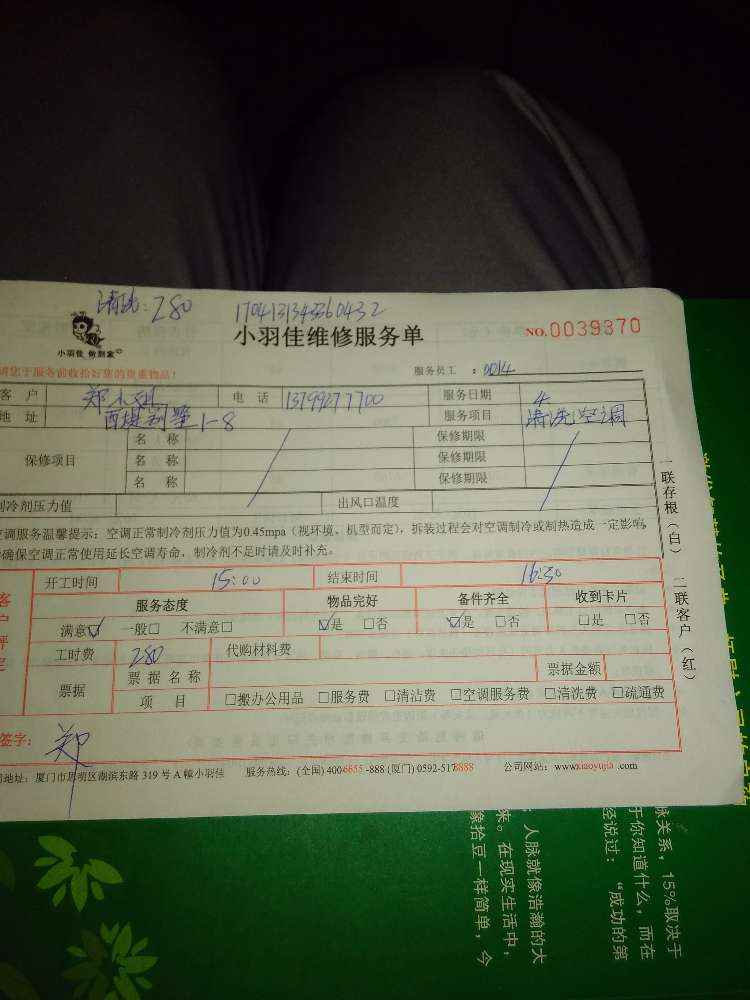 280
1704131343360432
小羽佳 做到家
小羽佳维修服务单
NO.0039370
请您于服务前收拾好您的贵重物品！
服务员工：0014
客 户 郑小 电 话 13799277700 服务日期 4
地 址 西堤别墅1-8 服务项目 清洗空调
保修项目
名 称 保修期限
名 称 保修期限
名 称 保修期限
制冷剂压力值 出风口温度
空调服务温馨提示：空调正常制冷剂压力值为0.45mpa（视环境、机型而定），拆装过程会对空调制冷或制热造成一定影响，
确保空调正常使用延长空调寿命，制冷剂不足时请及时补充。
开工时间 15:00 结束时间 16:30
服务态度 物品完好 备件齐全 收到卡片
满意☑ 一般□ 不满意□ ☑是 □否 ☑是 □否 □是 □否
工时费 280 代购材料费
票据 票据名称 票据金额
项 目 □搬办公用品 □服务费 □清洁费 □空调服务费 □清洗费 □疏通费
签字： 郑
地址：厦门市思明区湖滨东路 319 号 A 幢小羽佳 服务热线：(全国) 4006655-888 (厦门) 0592-5178888 公司网站：www.xiaoyujia.com
一联存根（白） 二联客户（红）
客户评定
脉关系，15%取决于
于你知道什么，而在
经说过：“成功的第
人脉就像浩瀚的大
来。在现实生活中，
象拾豆一样简单，今